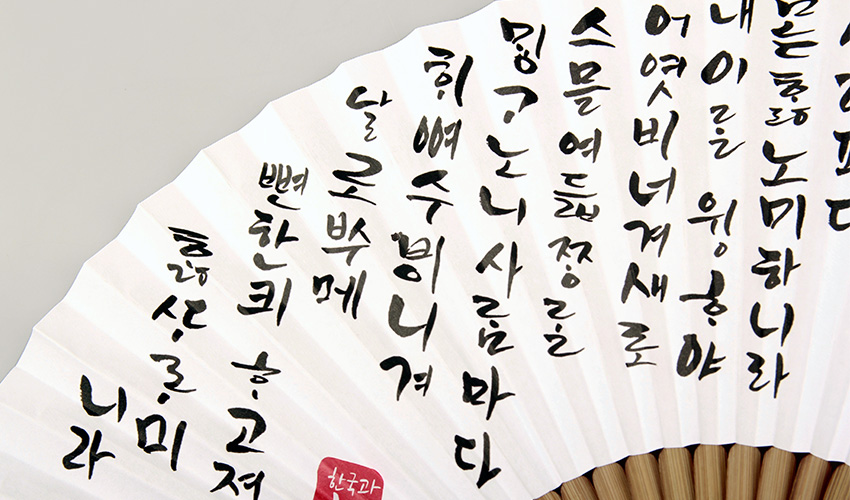 노미하니라
내이를 윙ᄒᆞ야
어엿비너겨새로
스믈여듧쭝를
밍ᄀᆞ노니사ᄅᆞᆷ마다
ᄒᆡᅇᅧ수ᄫᅵ니겨
날로ᄡᅮ메
뼌한킈 ᄒᆞ고져
ᄒᆞᇙᄯᆞᄅᆞ미
니라
한국과